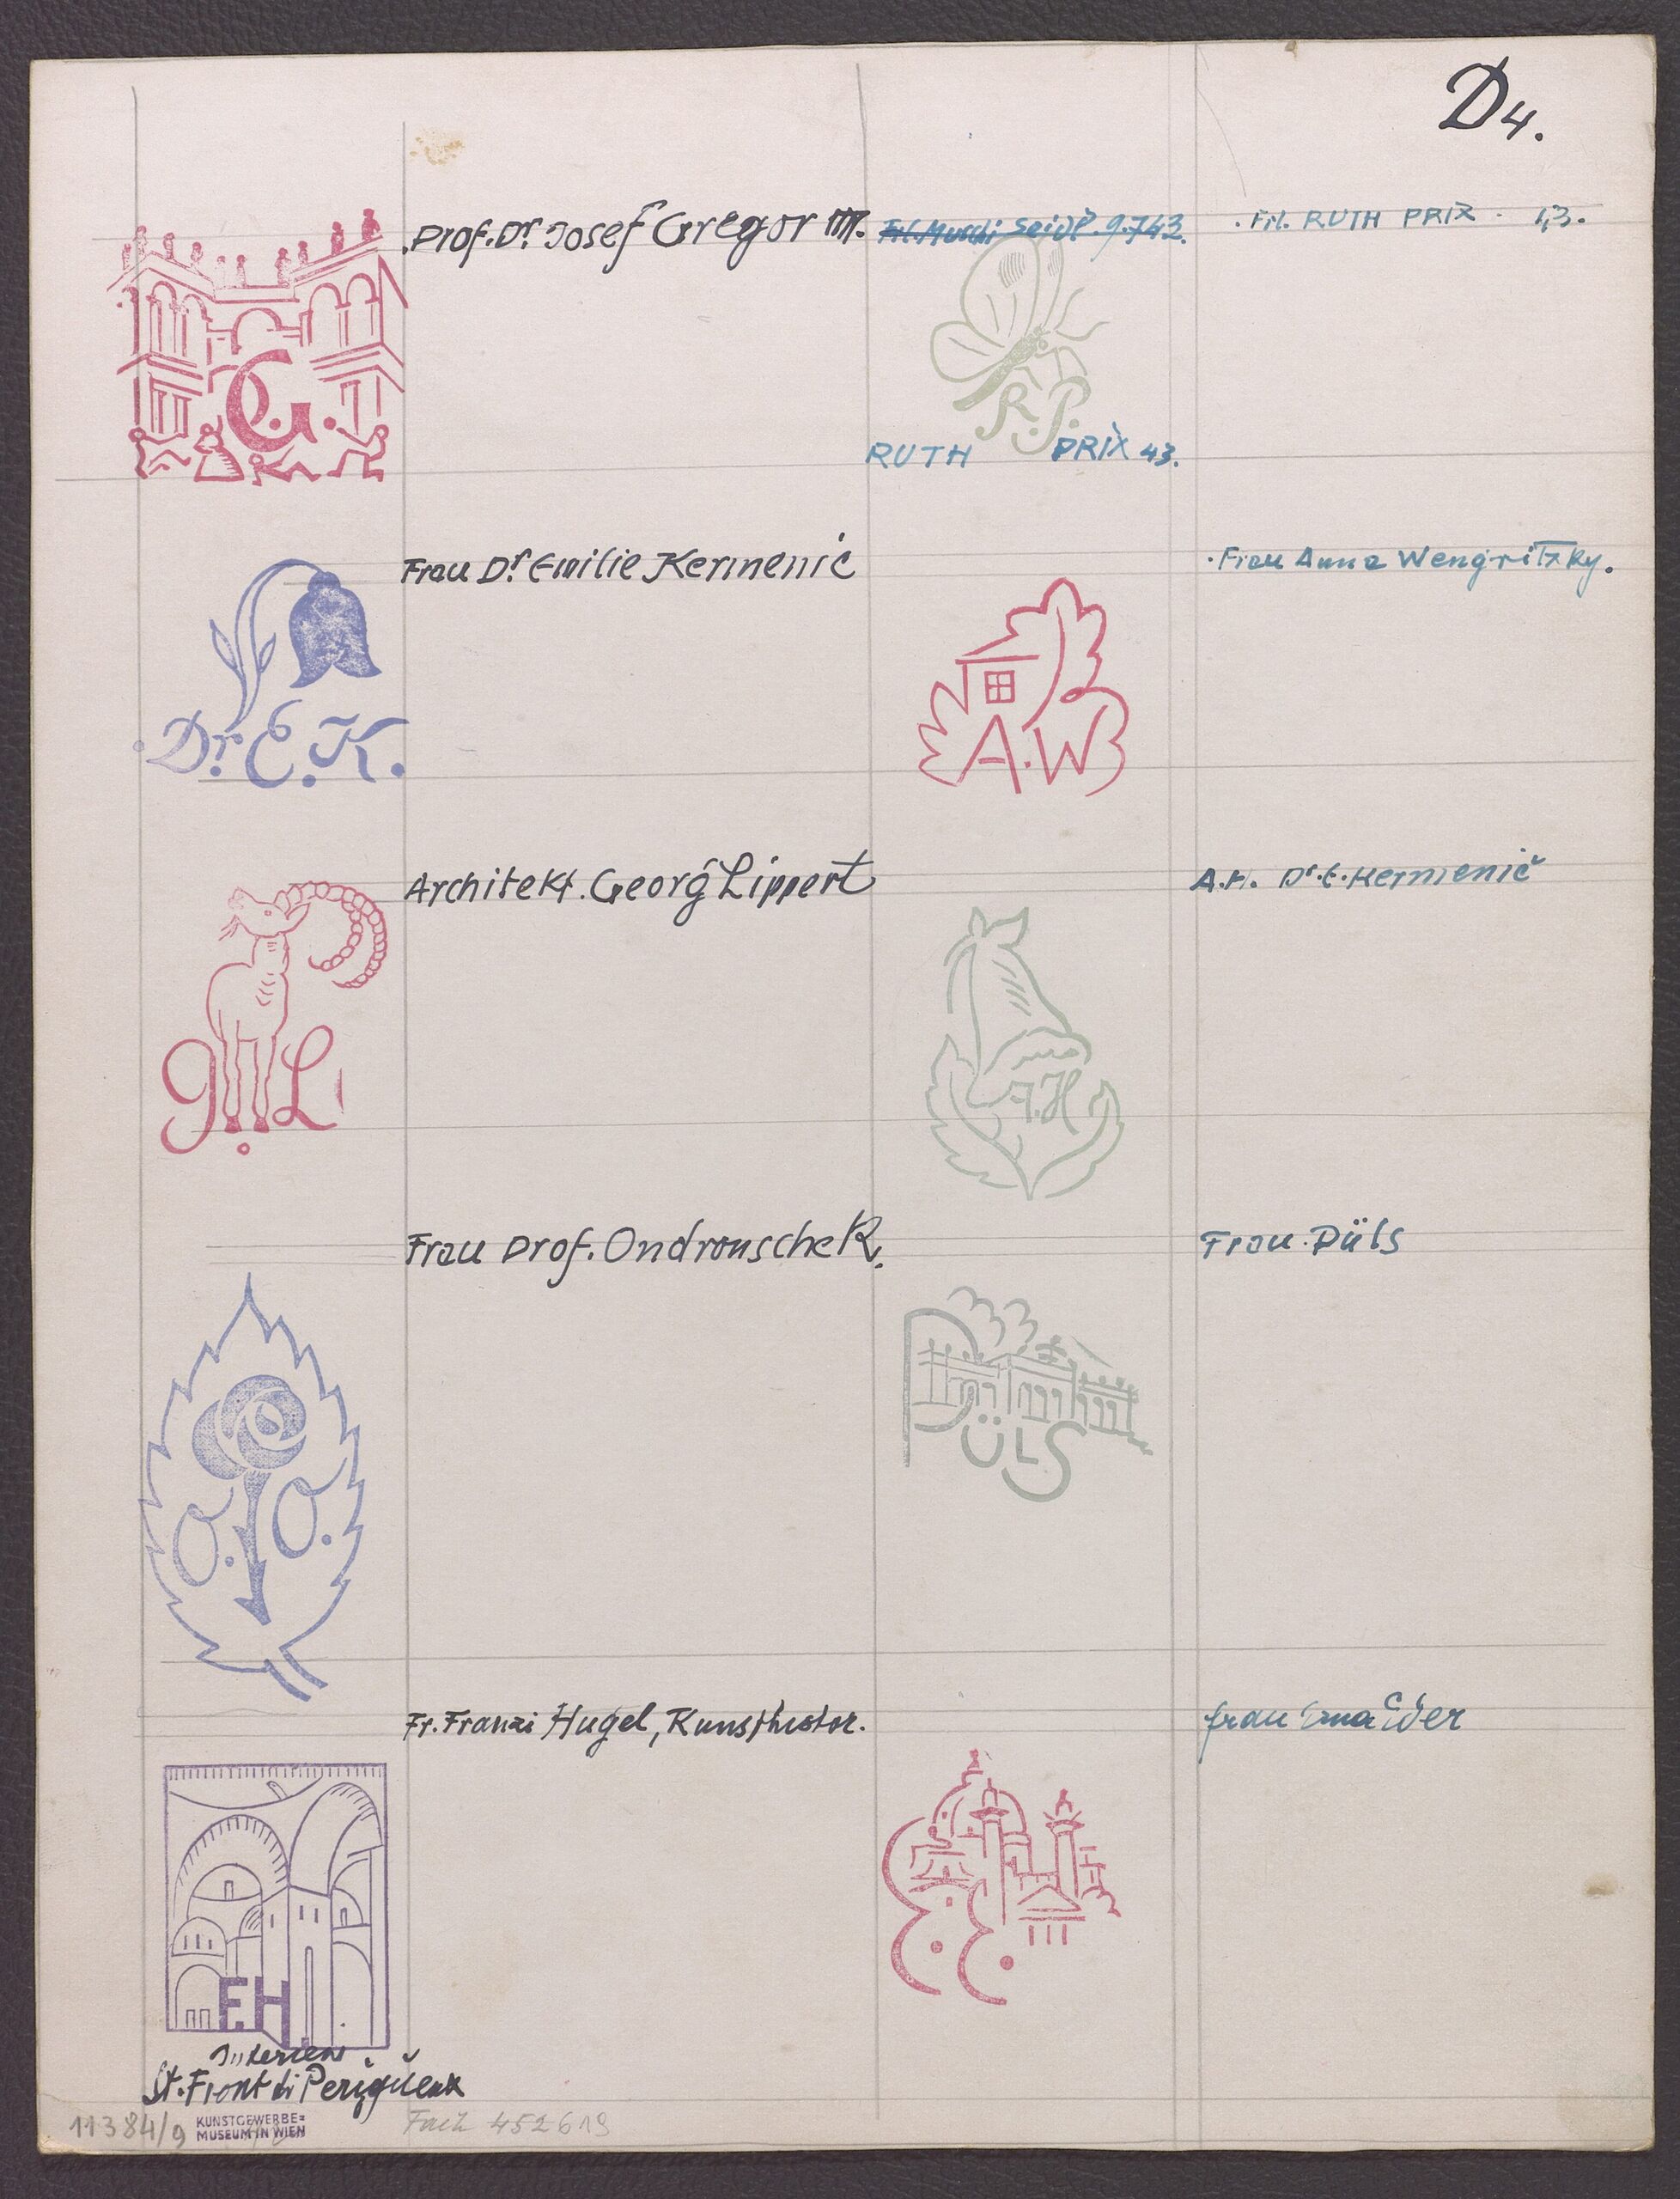 D4.
.Prof. Dr Josef Gregor
Frl. Muschi Seidl. 9.743.
. Frl. RUTH PRIX .
G.
R.P.
RUTH PRIX 43.
Frau Dr. Emilie Kermenić
.Frau Anna Wengritzky.
Dr. E.K.
A.W
Architekt. Georg Lippert
A.H. Dr.E.Kermenić
G.L
A.H
Frau Prof. OndronscheK.
Frau. Püls
PÜLS
O. O.
Fr. Franzi Hugel, Kunsthistor.
frau Erna Eder
E. E.
F.H
Interieur
St. Front di Perigueux
11384/9 KUNSTGEWERBE=
MUSEUM IN WIEN
Fach 452619